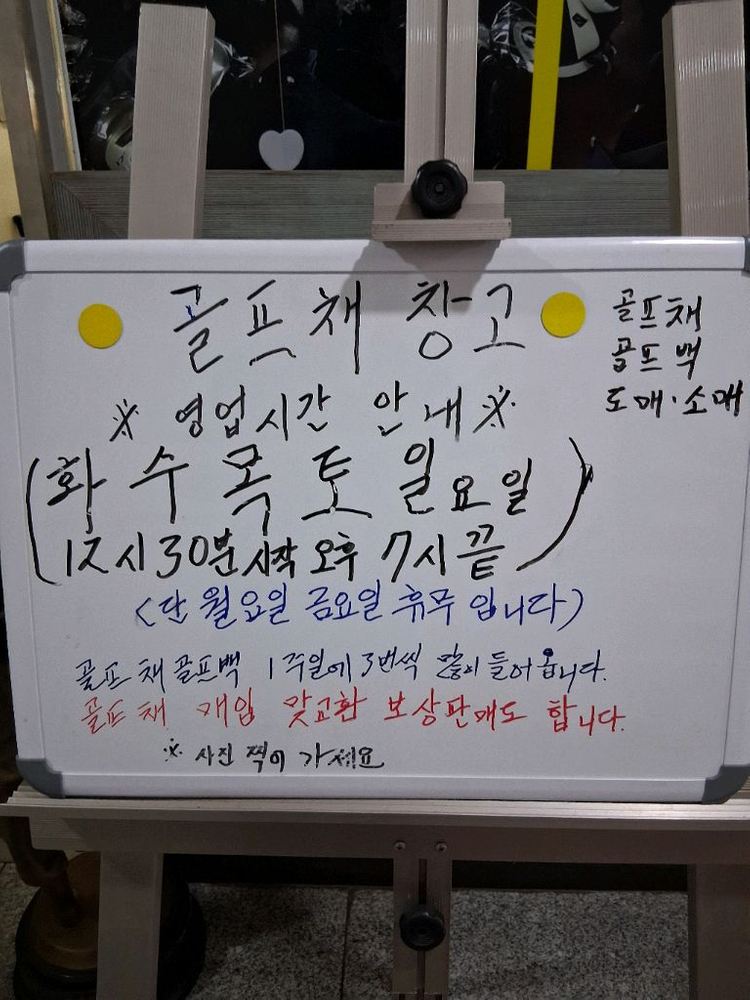 골프채 창고
골프채
골프백
도매·소매
※ 영업시간 안내 ※
(화 수 목 토 일요일
12시30분 시작 오후 7시 끝)
<단 월요일 금요일 휴무 입니다>
골프채 골프백 1주일에 3번씩 많이 들어 옵니다.
골프채 매입 맞교환 보상판매도 합니다.
※ 사진 찍어 가세요